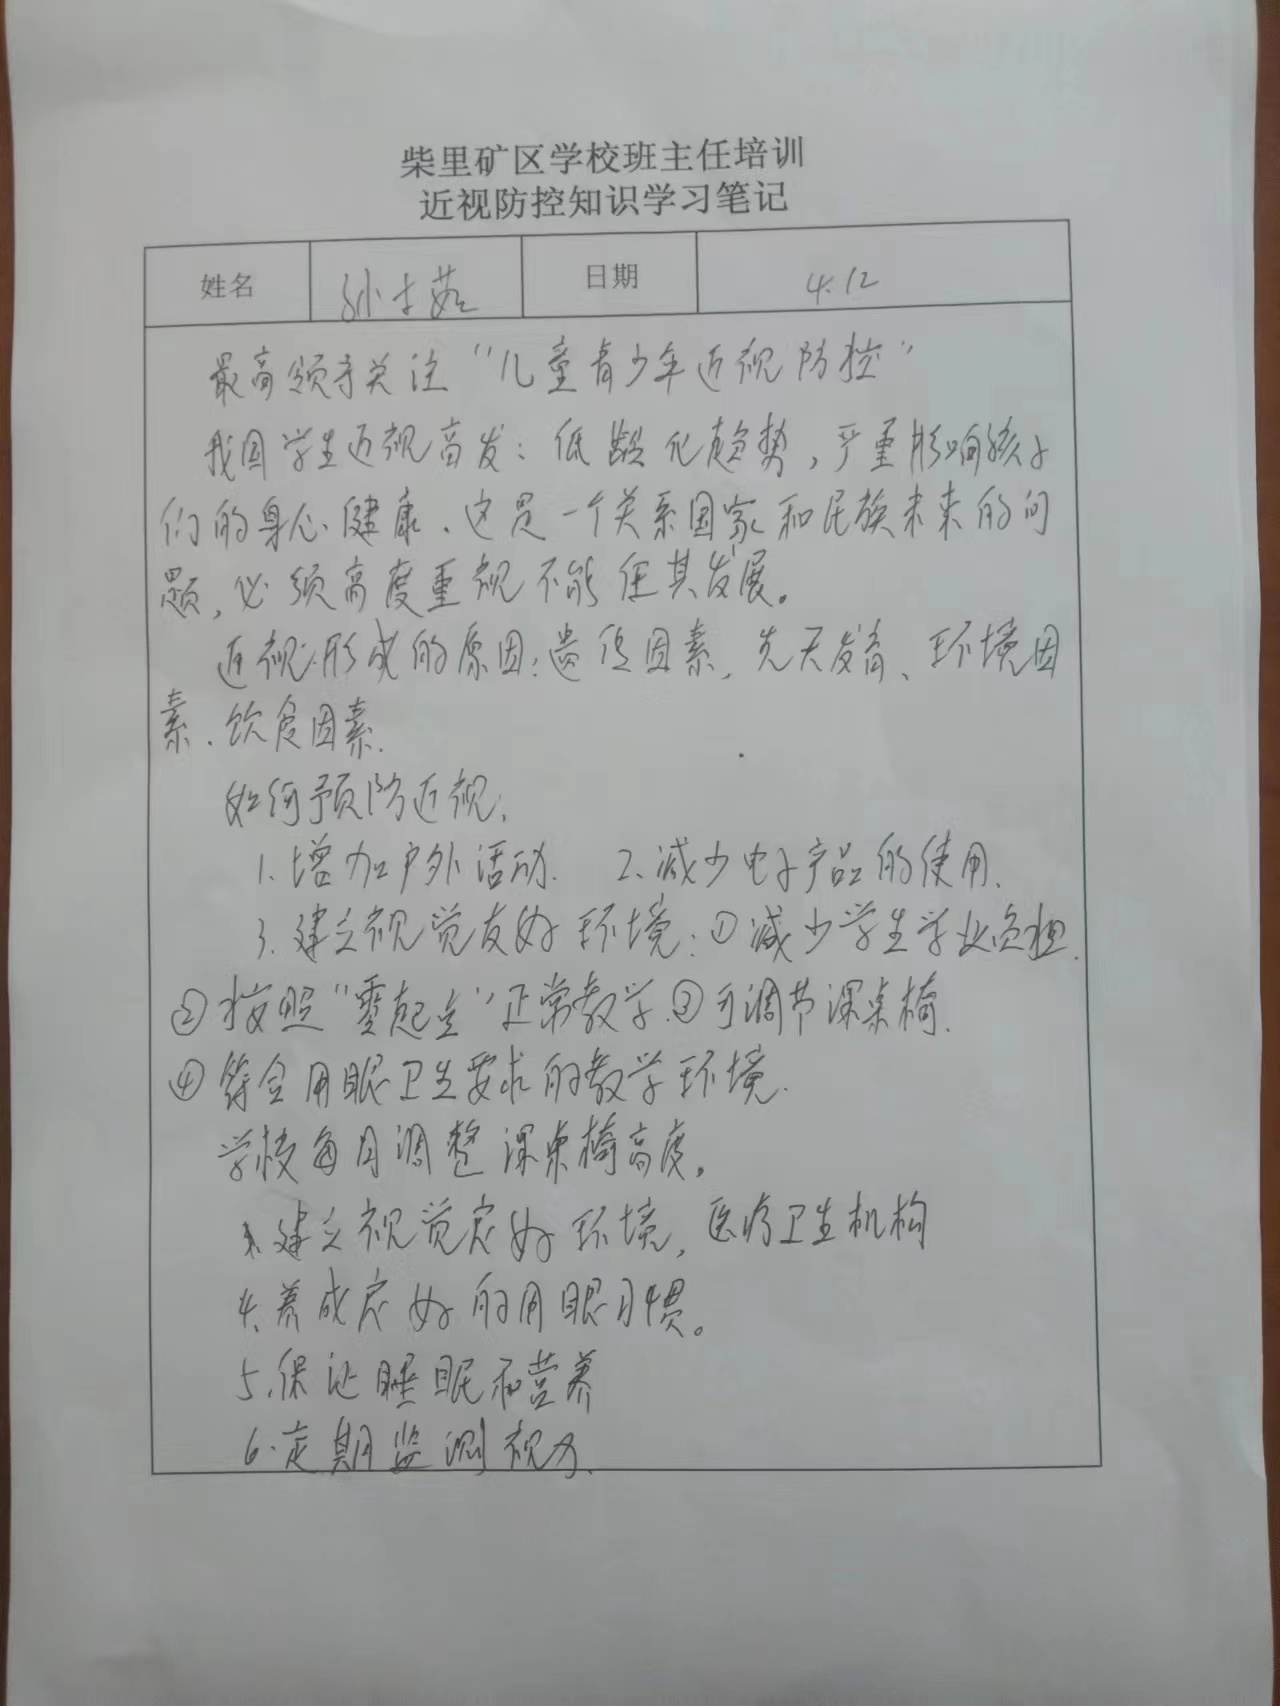 柴里矿区学校班主任培训
近视防控知识学习笔记
姓名 孙士茹 日期 4.12
最高领导关注“儿童青少年近视防控”
我国学生近视高发：低龄化趋势，严重影响孩子
们的身心健康、这是一个关系国家和民族未来的问
题，必须高度重视不能任其发展。
近视形成的原因：遗传因素，先天发育、环境因
素、饮食因素.
如何预防近视，
1.增加户外活动. 2.减少电子产品的使用.
3.建立视觉友好环境：①减少学生学业负担.
②按照“零起点”正常教学.③可调节课桌椅.
④符合用眼卫生要求的教学环境.
学校每月调整课桌椅高度。
建立视觉良好环境，医疗卫生机构
4.养成良好的用眼习惯。
5.保证睡眠和营养
6.定期监测视力.